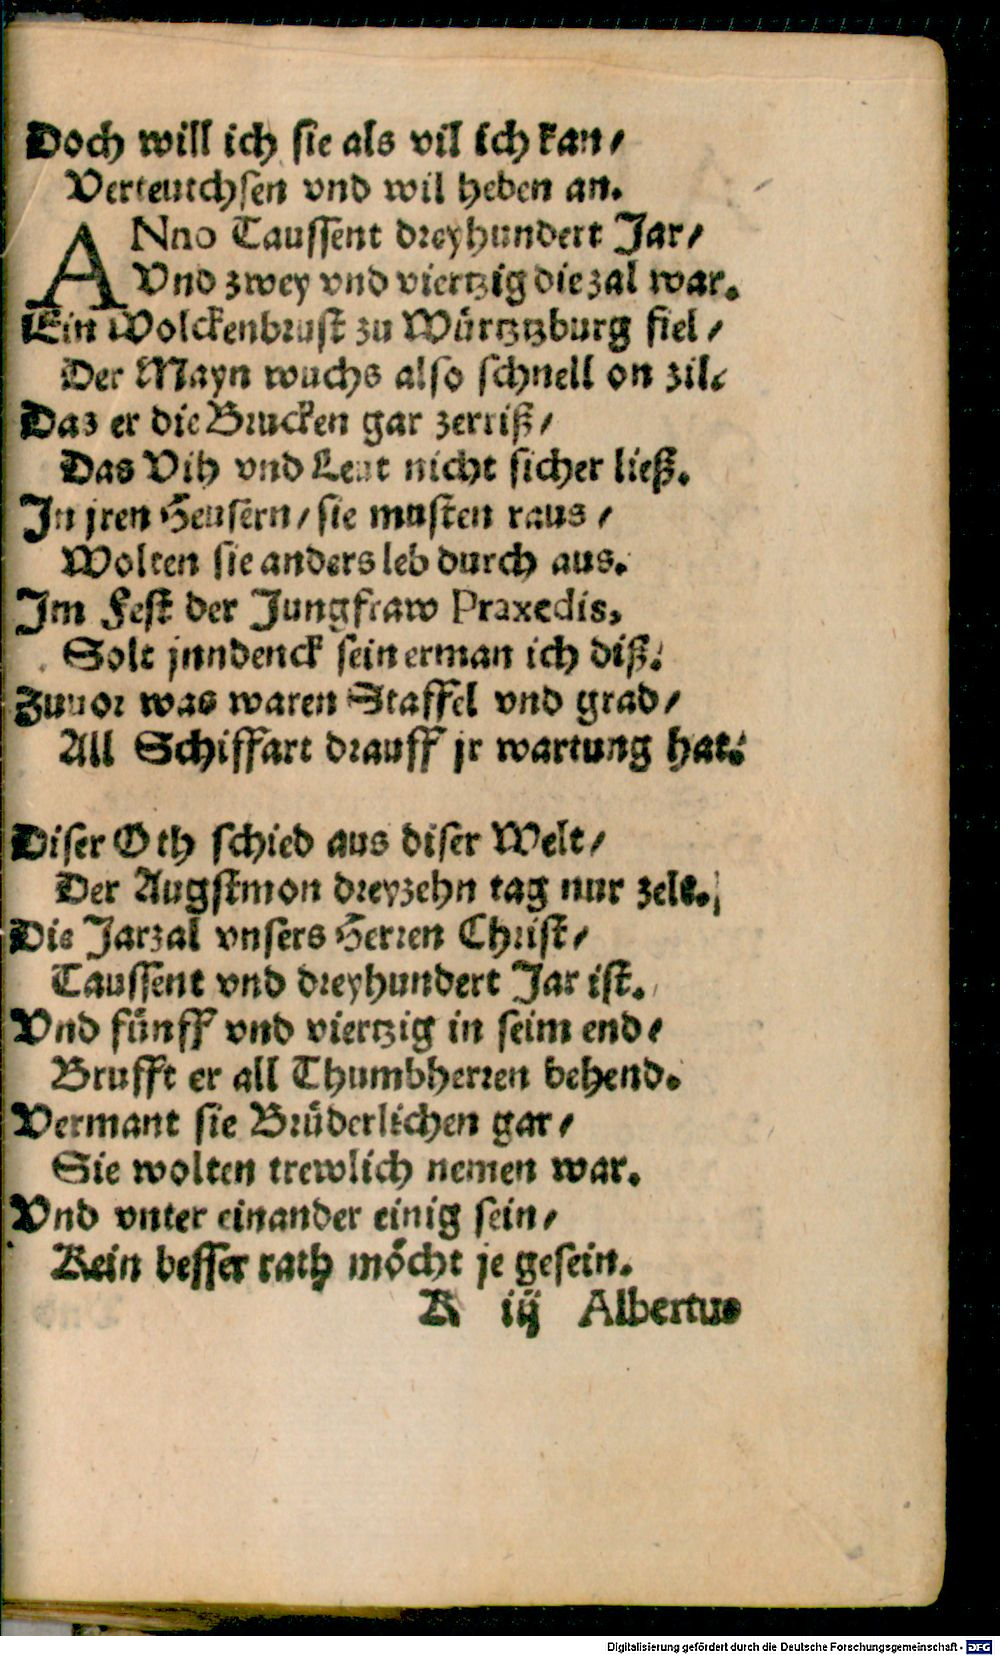 Doch will ich sie als vil ich kan/
Verteutchsen vnd wil heben an.
ANno Taussent dreyhundert Jar/
Vnd zwey vnd viertzig die zal war.
Ein Wolckenbrust zu Würtztzburg fiel/
Der Mayn wuchs also schnell on zil.
Das er die Brucken gar zerriß/
Das Vih vnd Leut nicht sicher ließ.
In jren Heusern/ sie musten raus/
Wolten sie anders leb durch aus.
Im Fest der Jungfraw Praxedis,
Solt jnndenck sein erman ich diß.
Zuuor was waren Staffel vnd grad/
All Schiffart drauff jr wartung hat.
Diser Oth schied aus diser Welt/
Der Augstmon dreyzehn tag nur zelt.
Die Jarzal vnsers Herren Christ/
Taussent vnd dreyhundert Jar ist.
Vnd fünff vnd viertzig in seim end/
Brufft er all Thumbherren behend.
Vermant sie Brüderlichen gar/
Sie wolten trewlich nemen war.
Vnd vnter einander einig sein/
Kein besser rath möcht je gesein.
K iij Albertus
Digitalisierung gefördert durch die Deutsche Forschungsgemeinschaft - DFG